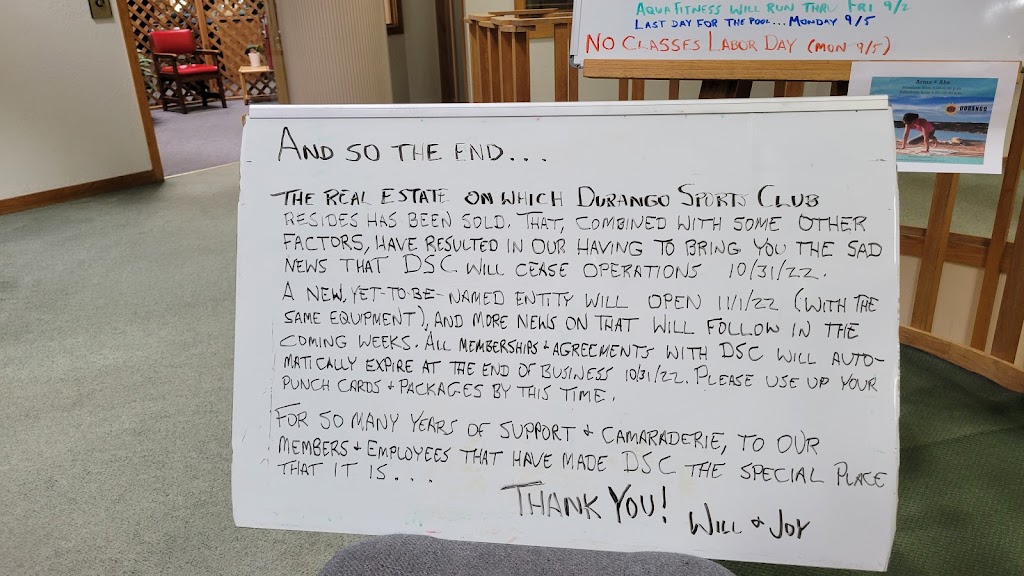 AQUAFITNESS WILL RUN THRU FRI 9/2
LAST DAY FOR THE POOL... MONDAY 9/5
NO CLASSES LABOR DAY (MON 9/5)
Arms & Abs
DURANGO
AND SO THE END...
THE REAL ESTATE ON WHICH DURANGO SPORTS CLUB
RESIDES HAS BEEN SOLD. THAT, COMBINED WITH SOME OTHER
FACTORS, HAVE RESULTED IN OUR HAVING TO BRING YOU THE SAD
NEWS THAT DSC WILL CEASE OPERATIONS 10/31/22.
A NEW, YET-TO-BE-NAMED ENTITY WILL OPEN 11/1/22 (WITH THE
SAME EQUIPMENT), AND MORE NEWS ON THAT WILL FOLLOW IN THE
COMING WEEKS. ALL MEMBERSHIPS & AGREEMENTS WITH DSC WILL AUTO-
MATICALLY EXPIRE AT THE END OF BUSINESS 10/31/22. PLEASE USE UP YOUR
PUNCH CARDS & PACKAGES BY THIS TIME.
FOR SO MANY YEARS OF SUPPORT & CAMARADERIE, TO OUR
MEMBERS & EMPLOYEES THAT HAVE MADE DSC THE SPECIAL PLACE
THAT IT IS...
THANK YOU! WILL & JOY